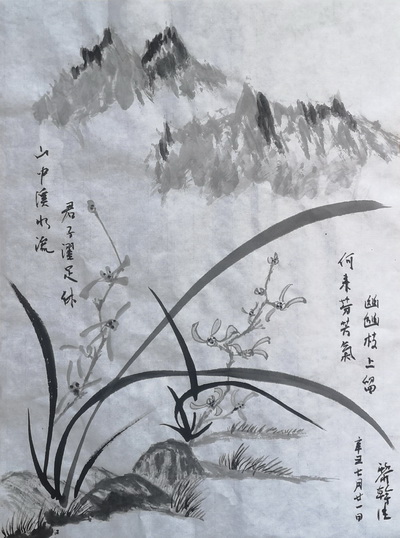 山中溪水流
君子濯足休
何来芬芳氣
幽幽枝上留
辛丑七月廿一日